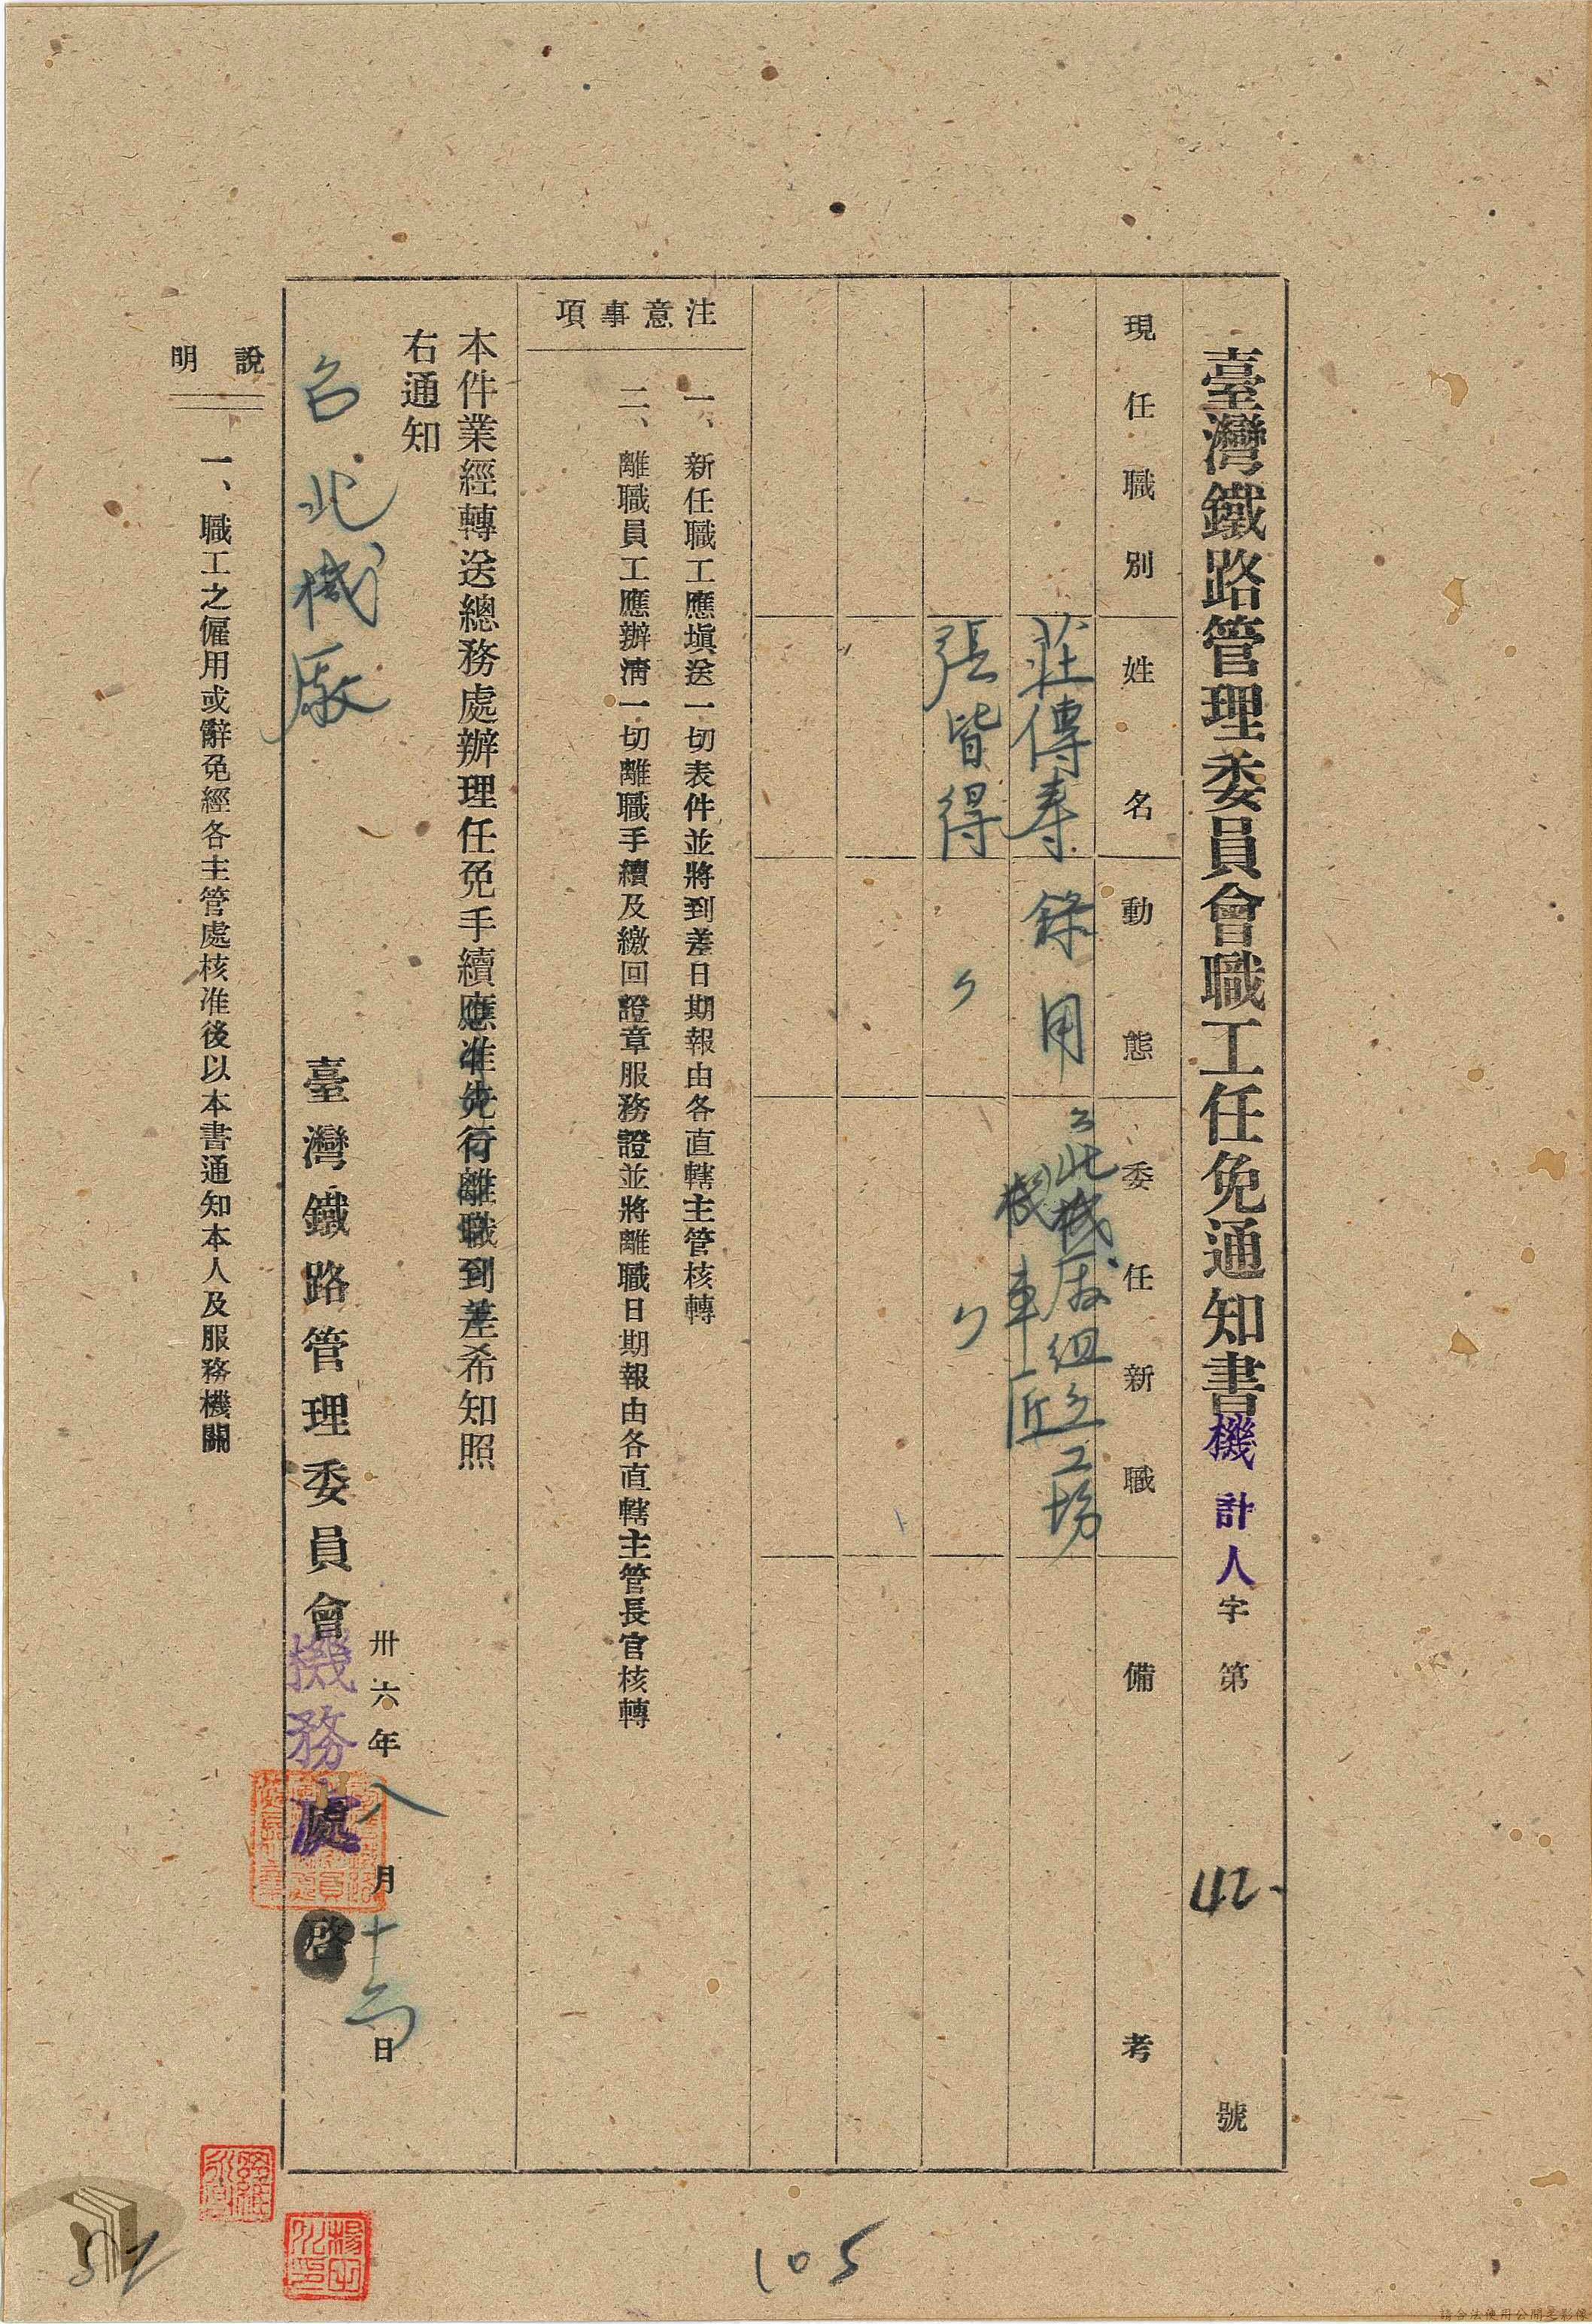 臺灣鐵路管理委員會職工任免通知書 機計人字第42號
現任職別 姓名 動態 委任新職 備考
莊傳壽 錄用 台北機廠組立工場機車匠
張皆得 〃 〃
注意事項
一、新任職工應填送一切表件並將到差日期報由各直轄主管核轉
二、離職員工應辦淸一切離職手續及繳回證章服務證並將離職日期報由各直轄主管長官核轉
本件業經轉送總務處辦理任免手續應准先行離職到差希知照
右通知
台北機廠
卅六年八月十六日
臺灣鐵路管理委員會機務處啓
說明
一、職工之僱用或辭免經各主管處核准後以本書通知本人及服務機關
105
52
請合法使用公開之影像